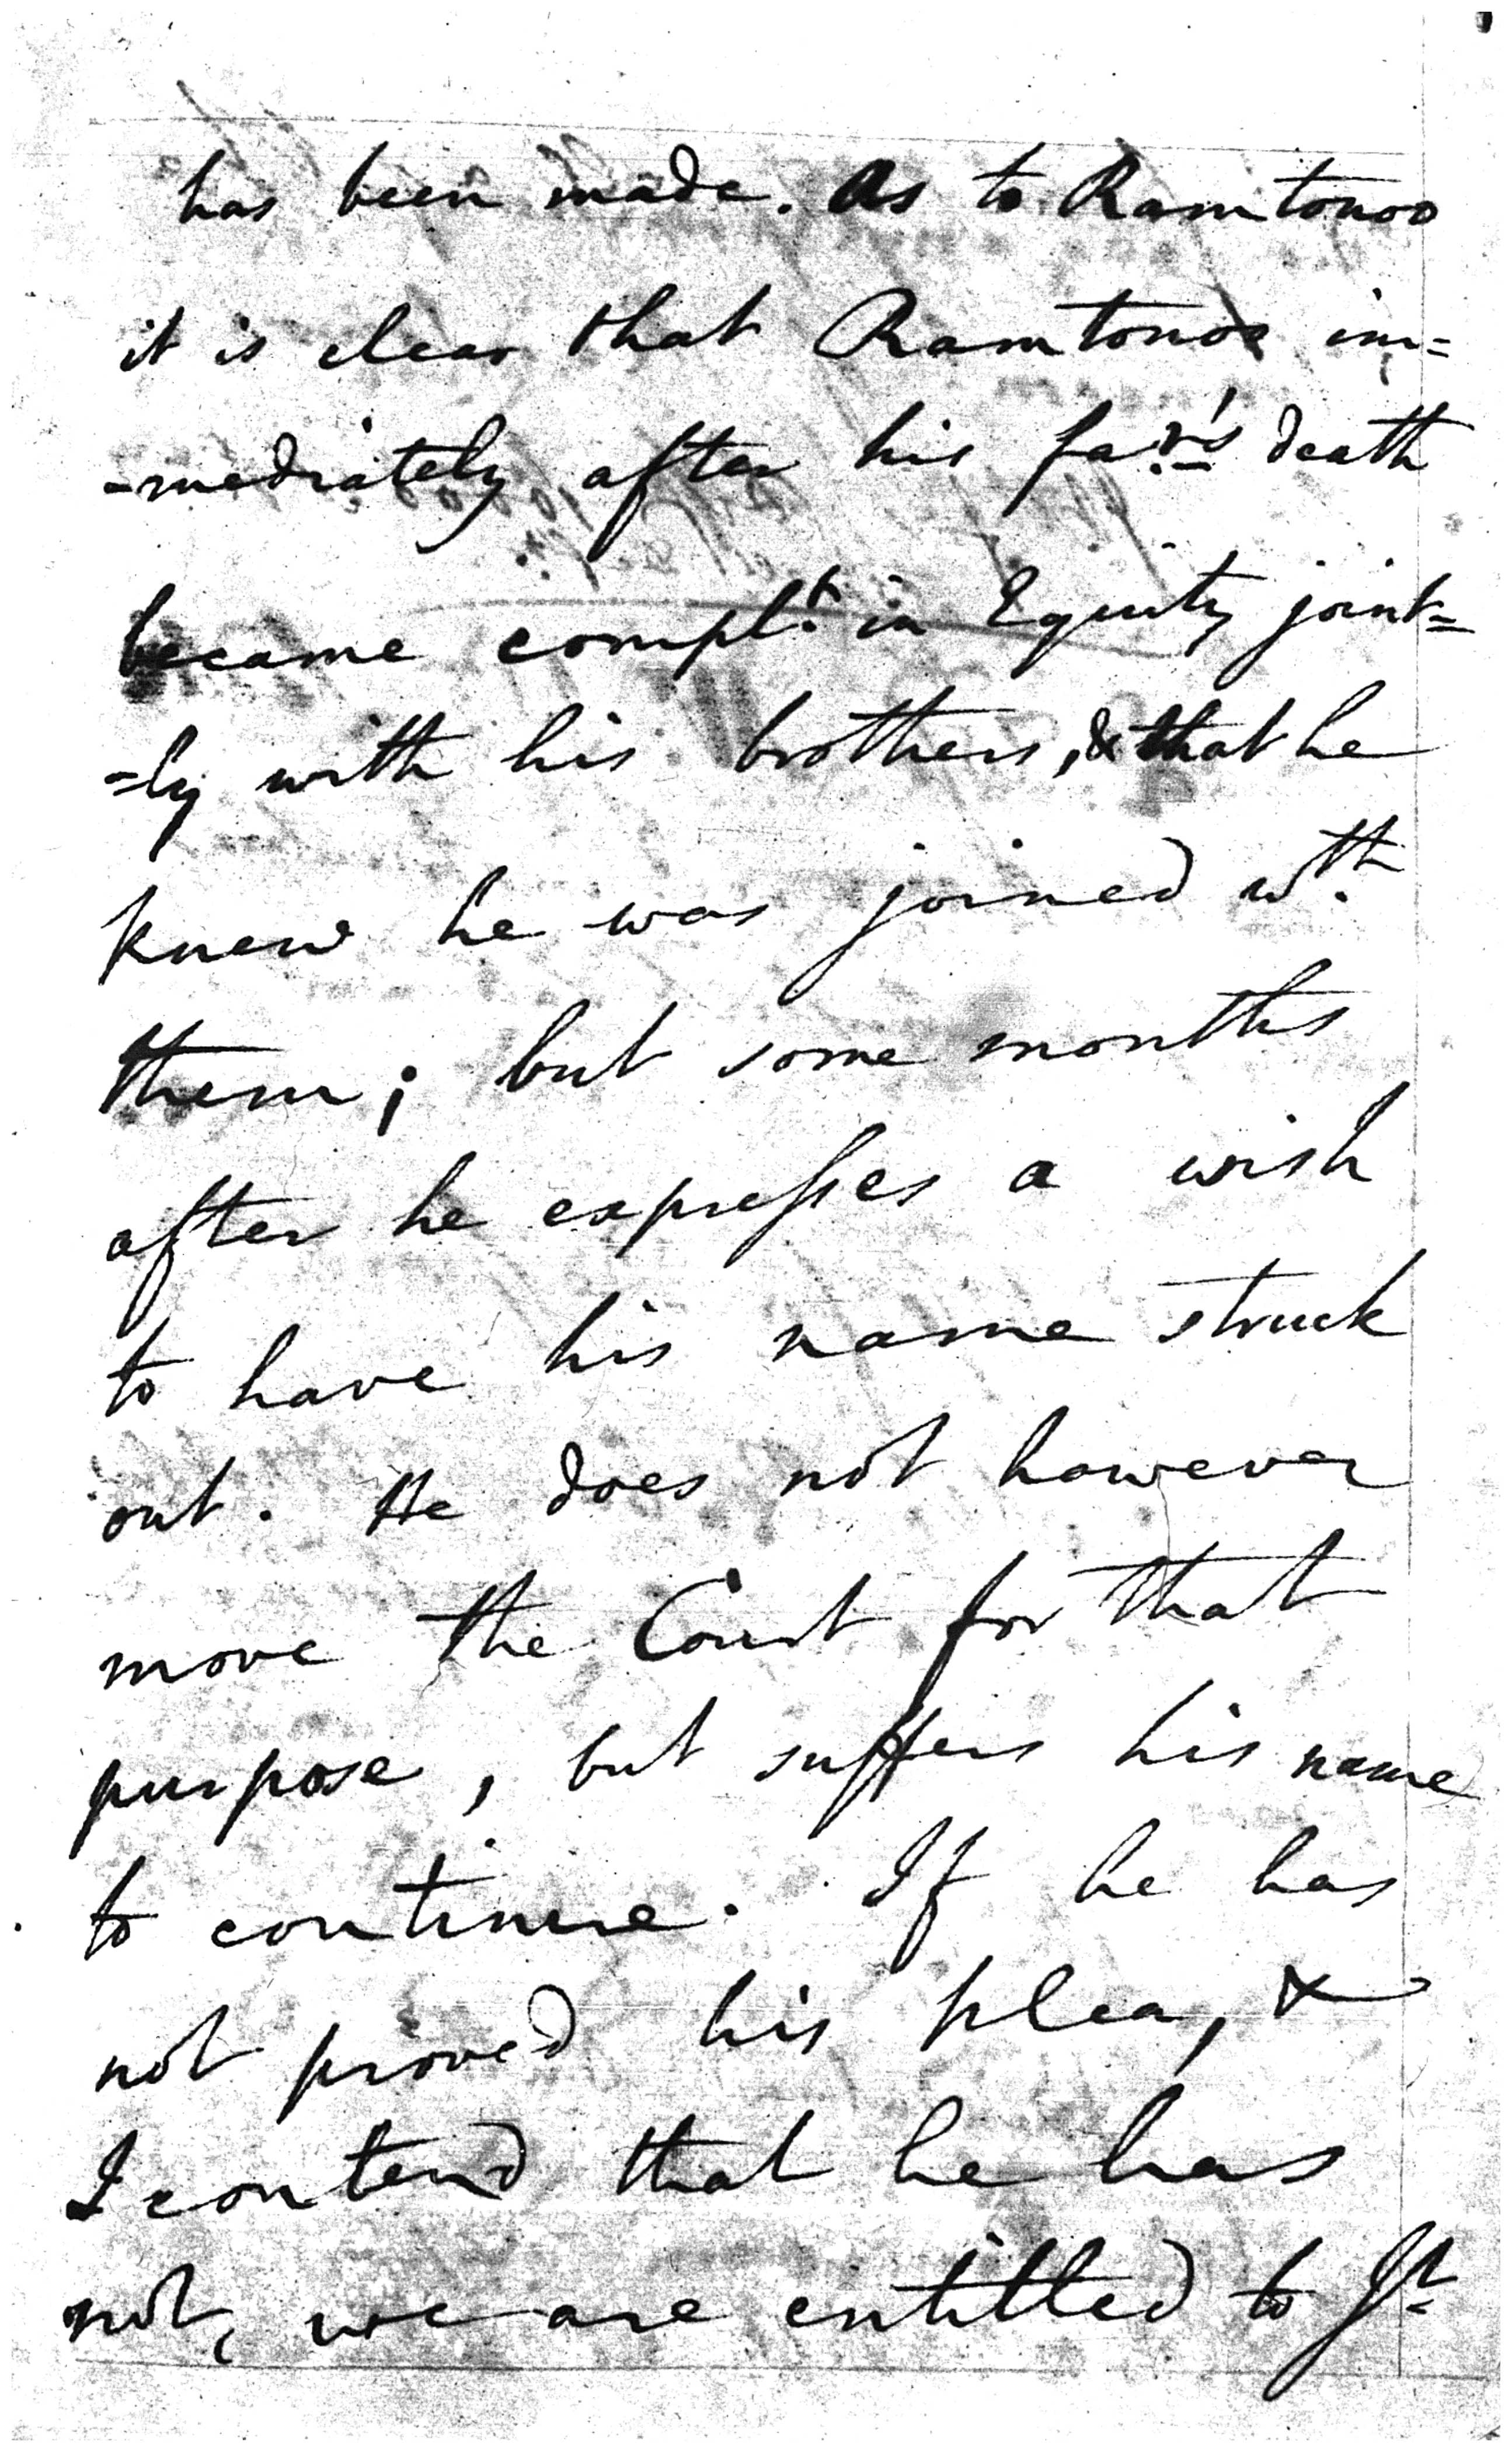 has been made. As to Ramtonoo
it is clear that Ramtonoo im=
-mediately after his far's death
became complt. in Equity joint=
=ly with his brothers, & that he
knew he was joined wth.
them; but some months
after he expresses a wish
to have his name struck
out. He does not however
move the Court for that
purpose, but suffers his name
to continue. If he has
not proved his plea, &
I contend that he has
not, we are entitled to Jt